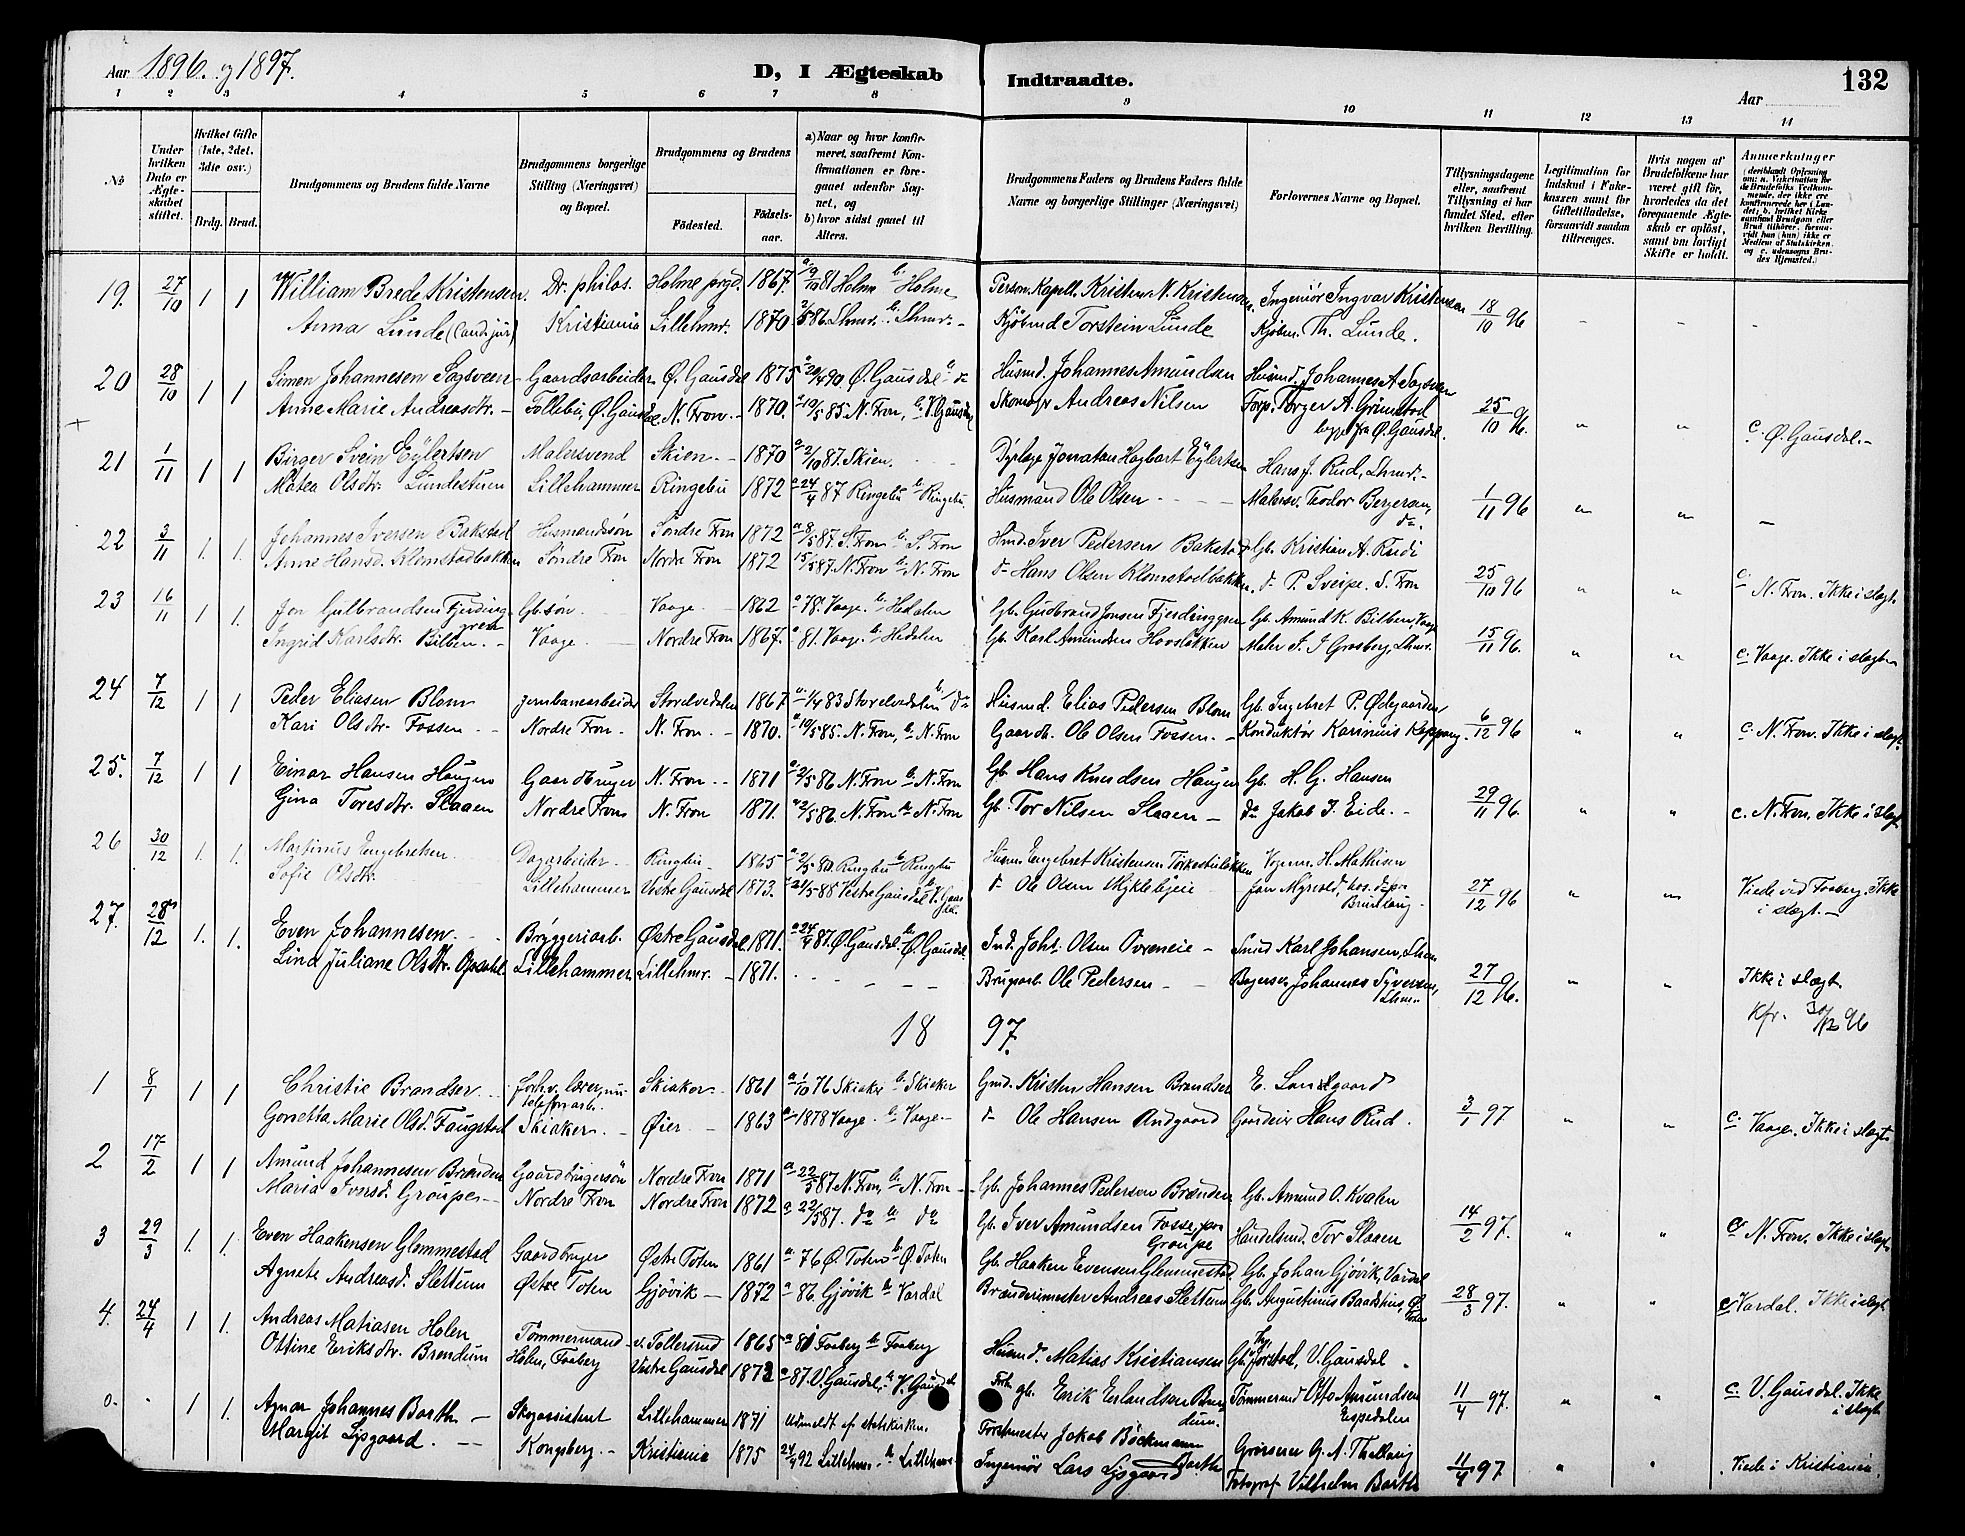 Aar 1896. og 1897.
D, I Ægteskab Indtraadte.
Aar
132
1 2 3 4 5 6 7 8 9 10 11 12 13 14
No
Under hvilken Dato er Ægteskabet stiftet.
Hvilket Gifte (1ste, 2det, 3die osv.)
Brdg. Brud.
Brudgommens og Brudens fulde Navne
Brudgommens borgerlige Stilling (Næringsvei) og Bopæl.
Brudgommens og Brudens
Fødested.
Fødselsaar.
a) Naar og hvor konfirmeret, saafremt Konfirmationen er foregaaet udenfor Sognet, og
b) hvor sidst gaaet til Alters.
Brudgommens Faders og Brudens Faders fulde Navne og borgerlige Stillinger (Næringsvei)
Forlovernes Navne og Bopæl.
Tillysningsdagene eller, saafremt Tillysning ei har fundet Sted, efter hvilken Bevilling.
Legitimation for Indskud i Enkekassen samt for Giftetilladelse, forsaavidt saadan tiltrænges.
Hvis nogen af Brudefolkene har været gift før, hvorledes da det foregaaende Ægteskab er opløst, samt om lovligt Skifte er holdt.
Anmærkninger
19. 27/10 1 1 William Brede Kristensen. Dr. philos. Holme prgd. 1867. a 9/10 81 Holme b. Holme Person. Kapell. Kristen N. Kristensen. Ingeniør Ingvar Kristensen 18/10 96
Anna Lunde (Cand. jur) Kristiania Lillehmr. 1870 2/5 86. Lhmr. b. Lhmr. Kjøbmd Torstein Lunde Kjøbm. Th. Lunde.
20 28/10 1 1 Simen Johannesen Sagsveen Gaardsarbeider Ø. Gausdal 1875 a 20/4 90 Ø. Gausdal b do Husmd. Johannes Amundsen Husmd. Johannes A Sagsveen
Anne Marie Andreasdtr. Follebu, Ø. Gausdal. N. Fron. 1870. a 10/5 85 N. Fron, b. V. Gausdal Andreas Nilsen Forp. Torger A. Grimstad 25/10 96.
begge fra Ø. Gausdal. c. Ø. Gausdal.
21 1/11 1 1 Birger Svein Eylertsen Malersvend Skien 1870 a 2/10 87. Skien. Dyrlæge Jonatan Hagbart Eylertsen Hans J. Rud, Lhmr.
Matea Olsdtr. Lundestuen Lillehammer Ringebu 1872 a 24/4 87 Ringebu b. Ringebu Husmand Ole Olsen Malersv. Teodor Bergersen, do. 1/11 96
22 3/11 1. 1. Johannes Iversen Bakstad Husmandssøn Søndre Fron 1872 a 8/5 87. S. Fron b. S. Fron Hmd. Iver Pedersen Bakstad Gb. Kristian A. Rudi
Anne Hansd. Klomstadbakken Søndre Fron Nordre Fron 1872 15/5 87. N. Fron b. N. Fron do Hans Olsen Klomstadbakken. do P. Sveipe. S. Fron 25/10 96 c. N. Fron. Ikke i slægt.
23 16/11 1. 1. Jon Gulbrandsen Fjerdinggren Gb. søn Vaage 1862 a 78. Vaage. b. Hedalen Gb. Gudbrand Jonsen Fjerdinggren Gb. Amund K. Bilben, Vaage
Ingrid Karlsdtr. Bilben. Vaage Nordre Fron 1867. a 81. Vaage. b. Hedalen Gb. Karl Amundsen Hovsløkken Maler J. J Grosberg, Lhmr. 15/11 96. c. Vaage. Ikke i slægt
24 7/12 1 1 Peder Eliasen Blom Jernbanearbeider Storelvedalen 1867. a 1/4 83 Storelvedalen b. do Husmd. Elias Pedersen Blom Gb. Ingebret P. Ødegaarden
Kari Olsdtr. Fossen Nordre Fron N. Fron. 1870. a 10/5 85. N. Fron, b. N. Fron Gaardb. Ole Olsen Fossen. Konduktør Karinius Koppang. 6/12 96 c. N. Fron. Ikke i slægt.
25. 7/12 1 1 Einar Hansen Haugen Gaardbruger N. Fron. 1871 a 2/5 86 N. Fron b. N. Fron Gb. Hans Knudsen Haugen Gb. H. G. Hansen
Gina Toresdtr. Slaaen Nordre Fron N. Fron 1871. a 2/5 86. N. Fron b. N. Fron Gb. Tor Nilsen Slaaen do Jakob J. Eide. 29/11 96. c. N. Fron. Ikke i slægt
26 30/12 1. 1. Martinus Engebretsen Dagarbeider Ringbu 1865 a 2/5 80 Ringbu b. Ringbu Husm. Engebret Kristensen Vognm. H. Mathisen
Sofie Olsdtr. Lillehammer Vestre Gausdal 1873. 24/5 88 Vestre Gausdal b. V. Gausdal. do Ole Olsen 27/12 96 Viede ved Faaberg. Ikke i slægt.
27. 28/12 1. 1. Even Johannesen. Bryggeriarb. Østre Gausdal 1871. a 24/4 87. Ø. Gausdal. b. Ø. Gausdal Ind. Johs. Olsen Smed Karl Johansen, Lhmr
Lina Juliane Olsdtr. Opsahl. Lillehammer Lillehmr. 1871. Brugsarb. Ole Pedersen Johannes Syversen, Lhmr. 27/12 96. Ikke i slægt.
Kfr. 30/12 96
1897.
1 8/1 1 1 Christie Brandser forhv. lærer, nu telefonarb. Skiaker 1861 a 1/10 76 Skiaker b. Skiaker Gmd. Kristen Hansen Brandser
Gonetta Marie Olsd. Faugstad Skiaker. Øier 1863 a 1878 Vaage. b. Vaage do Ole Hansen Andgaard Gaardeier Hans Rud. 3/1 97 c. Vaage. Ikke i slægt
2 17/2 1 1 Amund Johannesen Brænden Gaardbrugersøn Nordre Fron 1871 a 22/5 87 N. Fron, b. N. Fron Gb. Johannes Pedersen Brænden Gb. Amund O. Kvalen
Maria Iversd. Groupe Nordre Fron Nordre Fron 1872 a 22/5 87. do b do Gb. Iver Amundsen Fosse, paa Groupe Handelsmd. Tor Slaaen 14/2 97. c. N. Fron. Ikke i slægt
3 29/3 1. 1. Even Haakensen Glemmestad Gaardbruger Østre Toten 1861 a 76 Ø. Toten b. Ø. Toten Gb. Haaken Evensen Glemmestad. Gb. Johan Gjøvik, Vardal
Agnete Andreasd. Slettum Østre Toten Gjøvik 1872 a 86. Gjøvik b. Vardal Brænderimester Andreas Slettum Gb. Augustinus Baadshus, Ø. Toten 28/3 97. c. Vardal. Ikke i slægt
4. 24/4 1 1. Andreas Matiasen Holen Tømmermand Tollersrud 1865 a 81 Faaberg b. Faaberg Husmd. Matias Kristiansen Gb. Jørstad, V. Gausdal.
Ottine Eriksdtr. Brendum Holen, Faaberg Vestre Gausdal 1872 a 87. V. Gausdal, b. V. Gausdal gb. Erik Erlandsen Brendum. Tømmermd Otto Amundsen Espedalen 11/4 97. c. V. Gausdal. Ikke i slægt
0. 1 1. Agnar Johannes Barth Skogassistent Lillehammer 1871 Udmeldt af statskirken. Forstmester Jakob Böckmann Barth G. A. Thallaug
Margit Lysgaard. Kongsberg. Kristiania 1875 24/4 92 Lillehmr. b. Lillehmr. Ingeniør Lars Lysgaard Fotograf Vilhelm Barth 11/4 97. Viede i Kristiania.